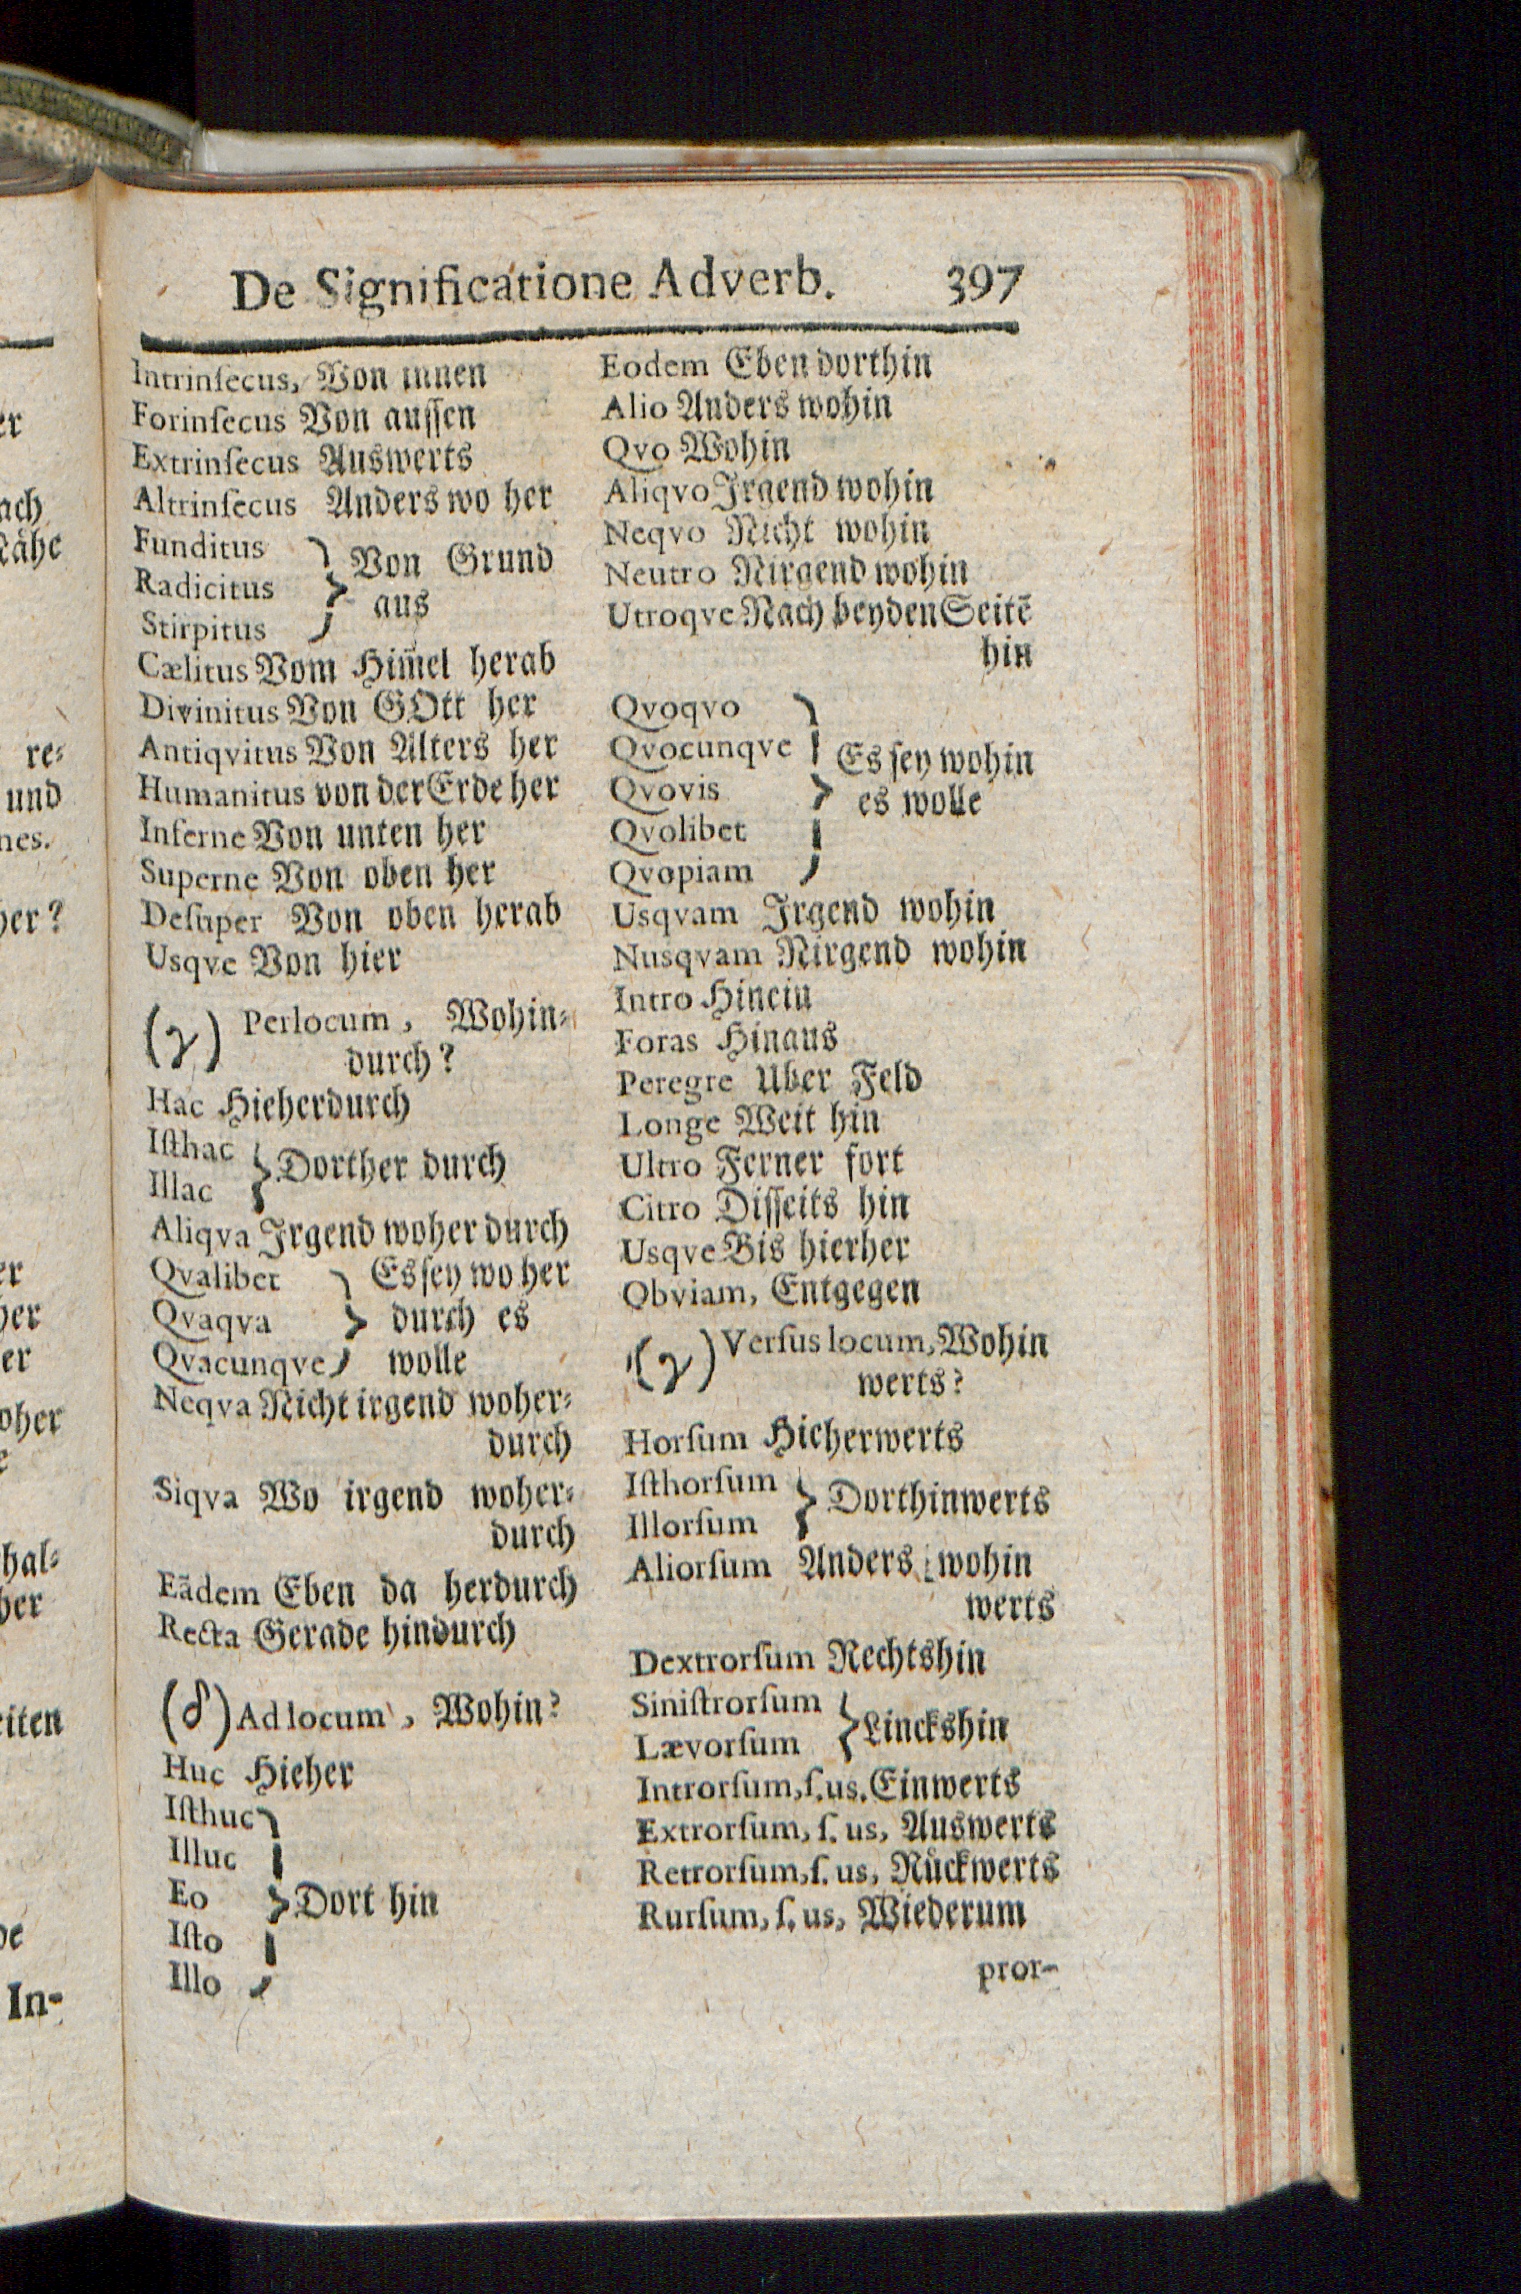 De Significatione Adverb. 397
Intrinſecus, Von innen
Forinſecus Von auſſen
Extrinſecus Auswerts
Altrinſecus Anders wo her
Funditus
Radicitus
Stirpitus
} Von Grund
aus
Cælitus Vom Him̃el herab
Divinitus Von GOtt her
Antiqvitus Von Alters her
Humanitus von der Erde her
Inferne Von unten her
Superne Von oben her
Deſuper Von oben herab
Usqve Von hier
(γ) Per locum, Wohin⸗
durch?
Hac Hieherdurch
Iſthac
Illac
} Dorther durch
Aliqva Jrgend woher durch
Qvalibet
Qvaqva
Qvacunqve
} Es ſey wo her
durch es
wolle
Neqva Nicht irgend woher⸗
durch
Siqva Wo irgend woher⸗
durch
Eãdem Eben da herdurch
Recta Gerade hindurch
(δ) Ad locum, Wohin?
Huc Hieher
Iſthuc
Illuc
Eo
Iſto
Illo
} Dort hin
Eodem Eben dorthin
Alio Anders wohin
Qvo Wohin
Aliqvo Jrgend wohin
Neqvo Nicht wohin
Neutro Nirgend wohin
Utroqve Nach beyden Seitẽ
hin
Qvoqvo
Qvocunqve
Qvovis
Qvolibet
Qvopiam
} Es ſey wohin
es wolle
Usqvam Jrgend wohin
Nusqvam Nirgend wohin
Intro Hinein
Foras Hinaus
Peregre Uber Feld
Longe Weit hin
Ultro Ferner fort
Citro Diſſeits hin
Usqve Bis hierher
Obviam, Entgegen
(γ) Verſus locum, Wohin
werts?
Horſum Hieherwerts
Iſthorſum
Illorſum
} Dorthinwerts
Aliorſum Anders wohin
werts
Dextrorſum Rechtshin
Siniſtrorſum
Lævorſum
} Linckshin
Introrſum, ſ. us. Einwerts
Extrorſum, ſ. us, Auswerts
Retrorſum, ſ. us, Ruͤckwerts
Rurſum, ſ. us, Wiederum
pror-